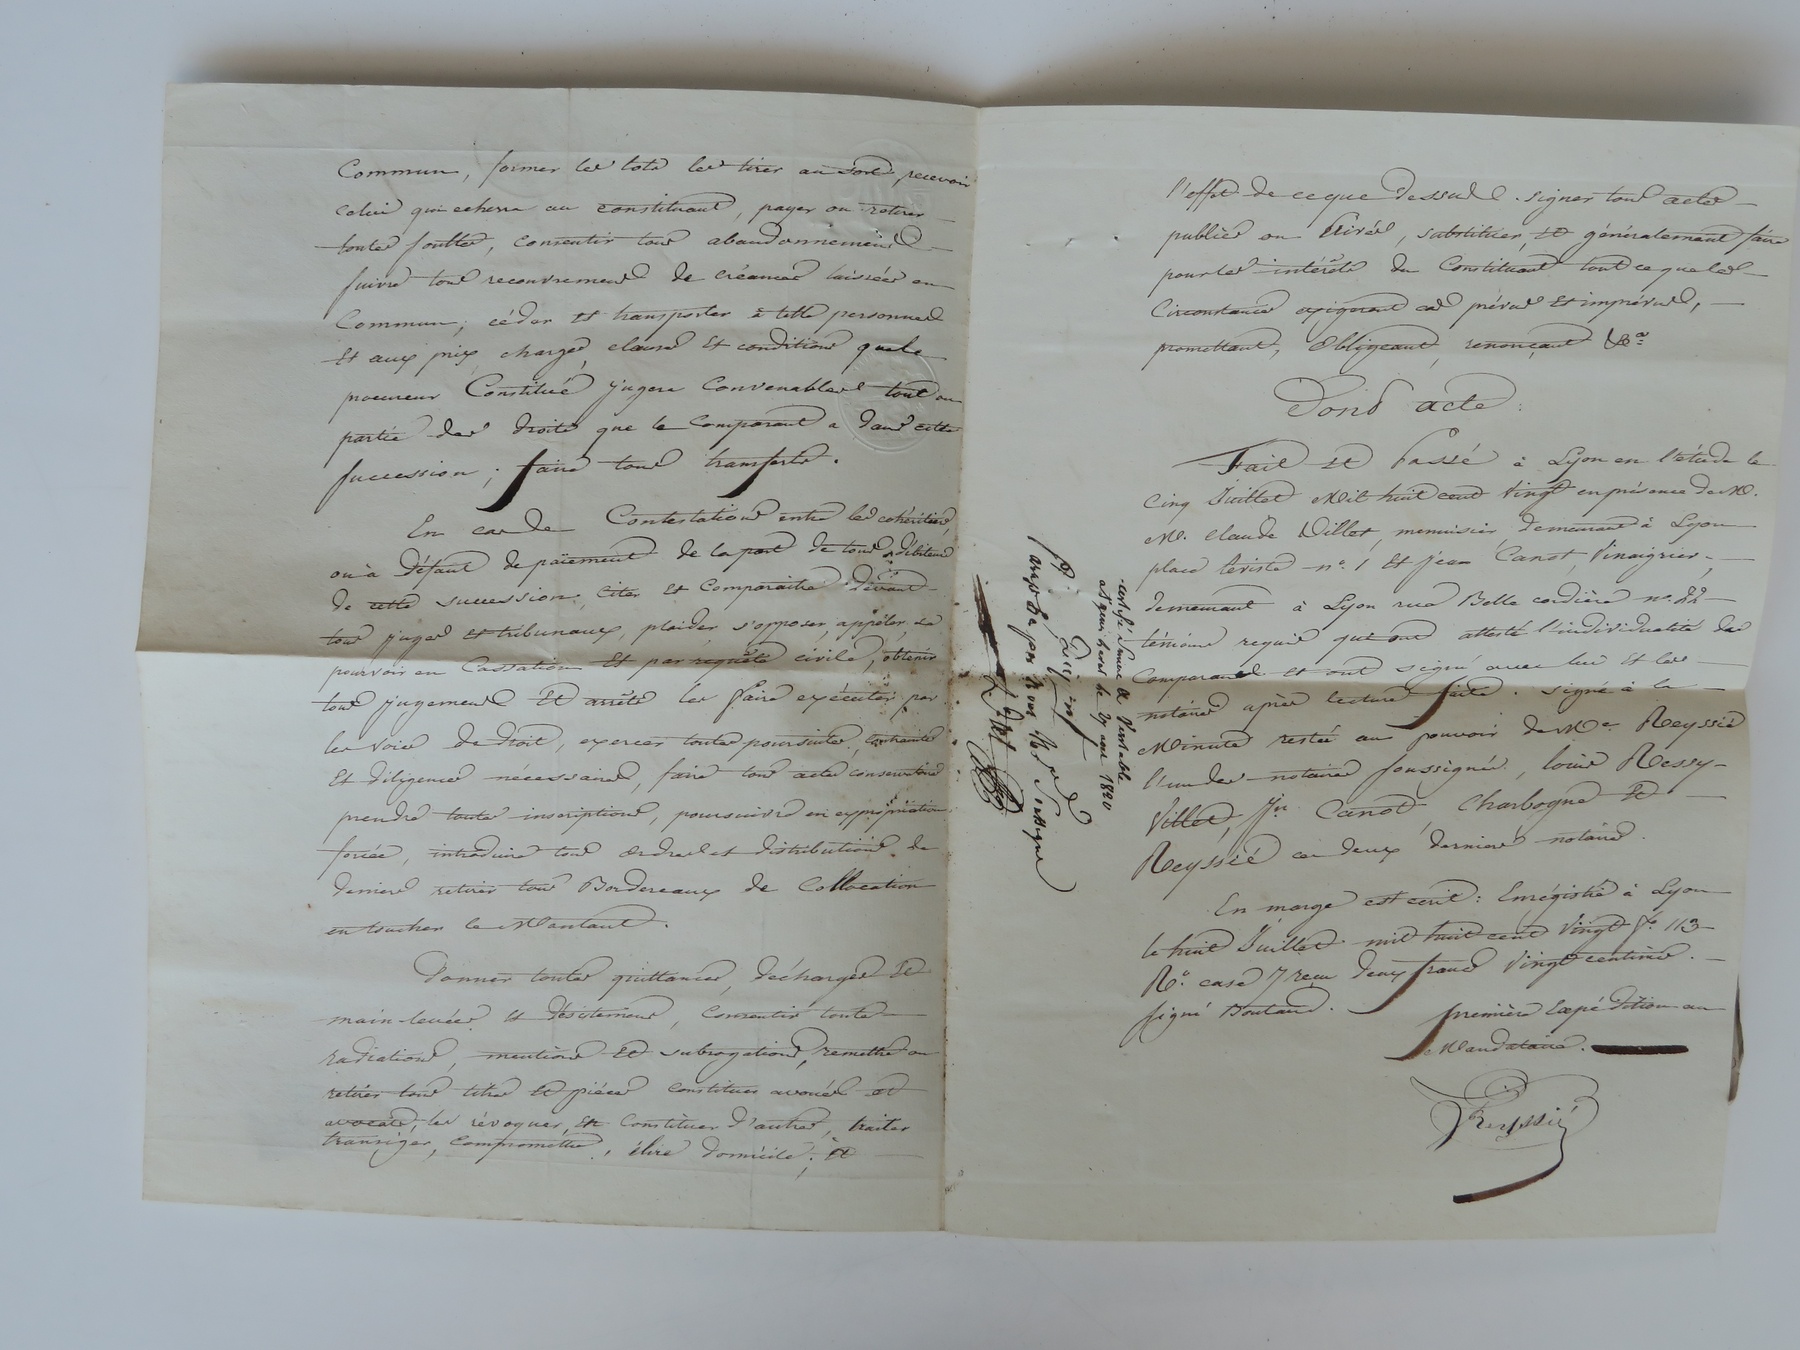 Commun, former les lots les tirer au sort, recevoir
celui qui echerra au constituant, payer ou retirer
toute soulte, consentir tous abandonnements
suivre tous recouvrements de créances laissées en
Commun; céder et transporter à telle personnes
et aux prix charges, clauses et conditions que le
procureur Constitué jugera Convenables tout ou
partie des droits que le Comparant a dans cette
succession; faire tous transferts.
En cas de Contestations entre les cohéritiers,
ou à défaut de païement de la part de tous débiteurs
de cette succession, citer et Comparaitre devant
tous juges et tribunaux, plaider, s'opposer, appeler, se
pourvoir en Cassation et par requête civile, obtenir
tous jugements et arrêts les faire exécuter par
les voies de droit, exercer toutes poursuites, contraintes
et diligences nécessaires, faire tous actes conservatoires
prendre toutes inscriptions, poursuivre en expropriation
forcée, introduire tous ordres et distributions de
deniers retirer tous Bordereaux de Collocation
en toucher le Montant.
Donner toutes quittances, décharges et
main-levées et désistements, Consentir toutes
radiations, mentions et subrogations, remettre ou
retirer tous titres et pièces constituer avoués et
avocats, les révoquer, en Constituer d'autres, traiter
transiger, compromettre, élire domicile, et
l'effet de ce que dessus signer tous actes
publics ou Privés, substituer, et généralement faire
pour les intérêts du Constituant tout ce que les
Circonstances exigeront cas prévus et imprévus,
promettant, obligeant, renonçant &a
Dont acte:
Fait et Passé à Lyon en l'étude le
cinq Juillet Mil huit cent Vingt en présence de M.
M. Claude Villet, menuisier, demeurant à Lyon
place n°. 1 et Jean Canot, Vinaigrier,
demeurant à Lyon rue Belle cordière n°. 22
témoins requis qui ont attesté l'individualité du
Comparant et ont signé avec lui et les
notaires après lecture faite. signé à la
Minute restée au pouvoir de Me. Reyssié
l'un des notaires soussignés, louis Ressy
Villet, Jn Canot, Charbogne et
Reyssié ces deux derniers notaires.
En marge est écrit: Enrégistré à Lyon
le huit Juillet mil huit cent Vingt f° 113
R°. case 7 reçu deux francs Vingt centimes.
signé Boutaud.
première Expédition au
Mandataire.
Reyssié
certifié Sincère & Veritable
le 27 aout 1820
par nous